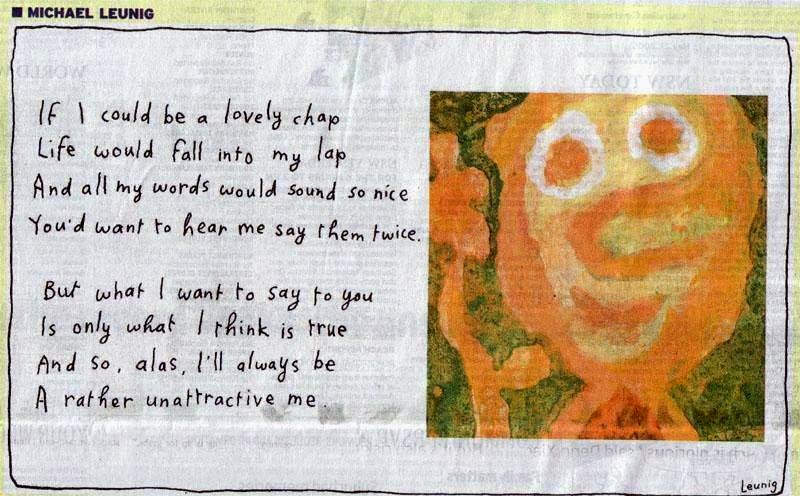 MICHAEL LEUNIG
If I could be a lovely chap
Life would fall into my lap
And all my words would sound so nice
You'd want to hear me say them twice.
But what I want to say to you
Is only what I think is true
And so, alas, I'll always be
A rather unattractive me.
Leunig